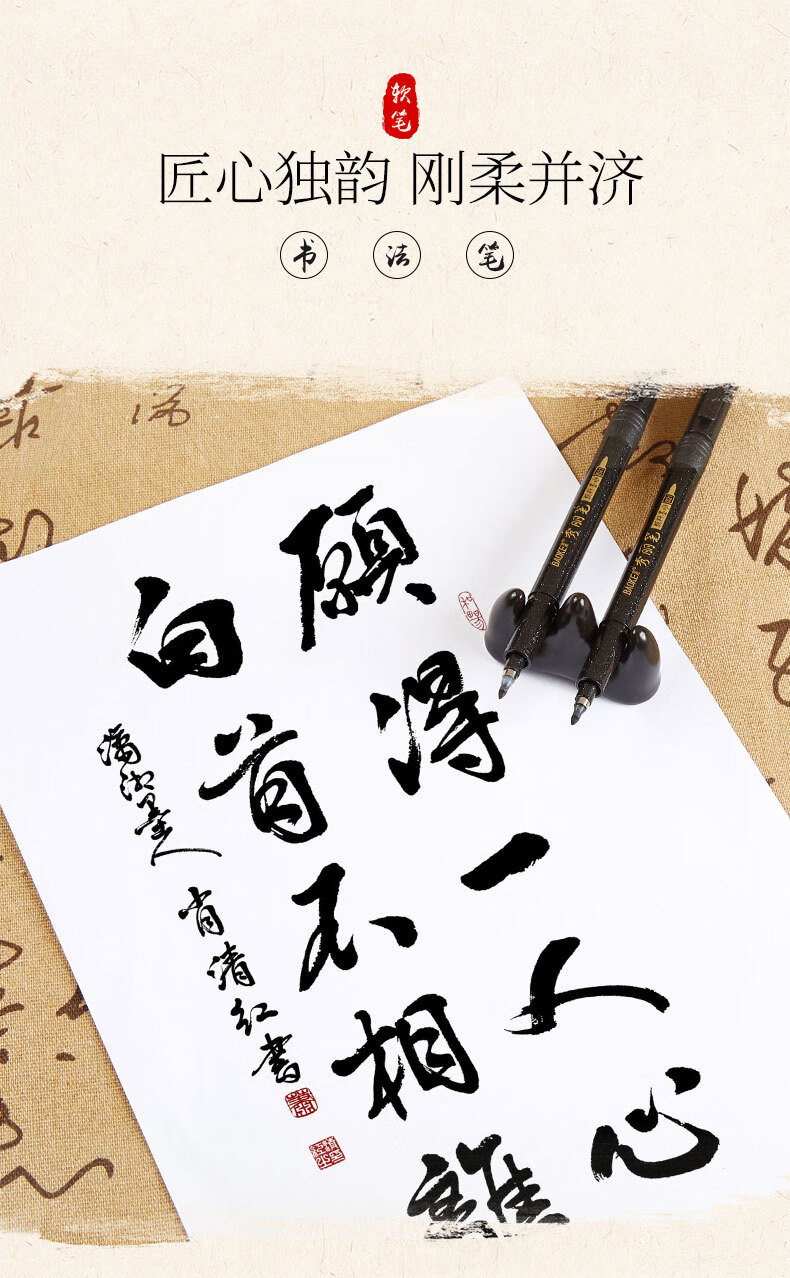 软笔
匠心独韵 刚柔并济
书法笔
願得一人心
白首不相離
潇湘墨人 肖清红书
BAOKE® 秀丽笔
BAOKE® 秀丽笔